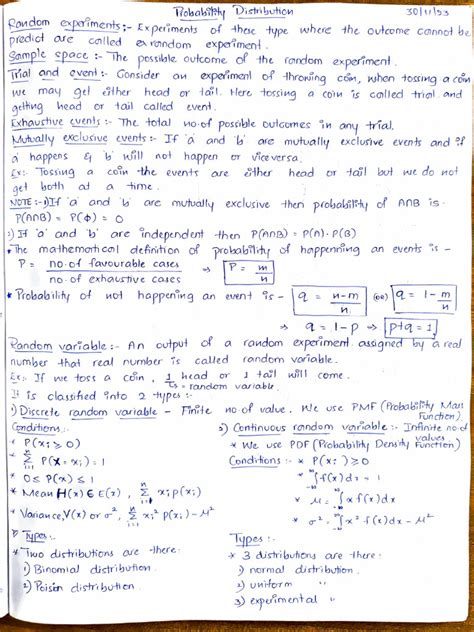 Probability Distribution
30/11/23
Random experiments:- Experiments of these type where the outcome cannot be
predict are called ex random experiment.
Sample space:- The possible outcome of the random experiment.
Trial and event:- Consider an experiment of throwing coin, when tossing a coin
we may get either head or tail. Here tossing a coin is called trial and
getting head or tail called event.
Exhaustive events:- The total no. of possible outcomes in any trial.
Mutually exclusive events:- If 'a' and 'b' are mutually exclusive events and if
'a' happens & 'b' will not happen or viceversa.
Ex:- Tossing a coin the events are either head or tail but we do not
get both at a time.
NOTE:- 1) If 'a' and 'b' are mutually exclusive then probability of A∩B is.
P(A∩B) = P(ϕ) = 0
2) If 'a' and 'b' are independent then P(A∩B) = P(A)·P(B)
* The mathematical definition of probability of happenning an events is -
P = no. of favourable cases / no. of exhaustive cases ⇒ P = m/n
* Probability of not happening an event is - q = n-m/n (or) q = 1 - m/n
⇒ q = 1-p ⇒ p+q = 1
Random variable:- An output of a random experiment assigned by a real
number that real number is called random variable.
Ex:- If we toss a coin, 1 head or 1 tail will come.
↳ = random variable.
It is classified into 2 types:-
1) Discrete random variable - Finite no. of value. We use PMF (Probability Mass
Function).
Conditions:-
* P(xᵢ ≥ 0)
* Σᵢ₌₁ⁿ P(X = xᵢ) = 1
* 0 ≤ P(x) ≤ 1
* Mean H(x) E E(x), Σᵢ₌₁ⁿ xᵢ p(xᵢ)
* Variance, V(x) or σ², Σᵢ₌₁ⁿ xᵢ² P(xᵢ) - μ²
Types:-
* Two distributions are there:
1) Binomial distribution.
2) Poision distribution.
2) Continuous random variable:- Infinite no. of
values
* We use PDF (Probability Density Function)
Conditions:- * P(xᵢ) ≥ 0
* ∫₋∞^∞ f(x) dx = 1
* μ = ∫₋∞^∞ x f(x) dx
* σ² = ∫₋∞^∞ x² f(x) dx - μ²
Types:-
* 3 distributions are there:
1) normal distribution.
2) uniform "
3) experimental "